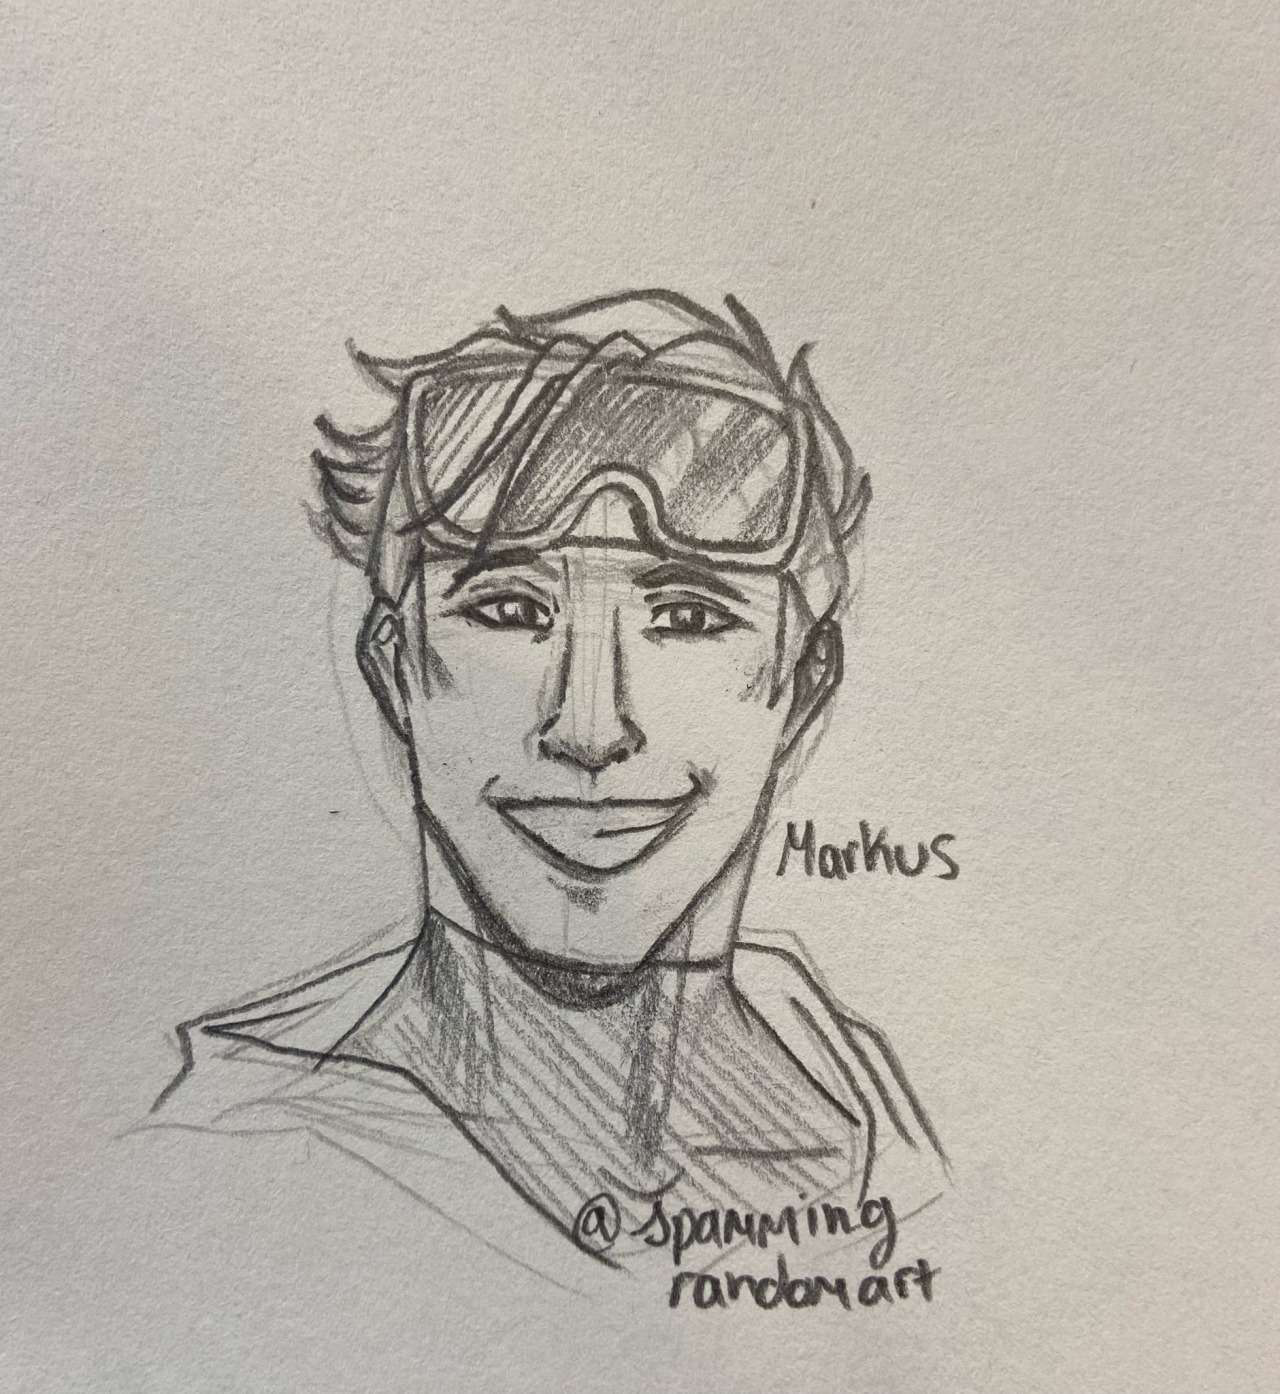 Markus
@spamming
randomart